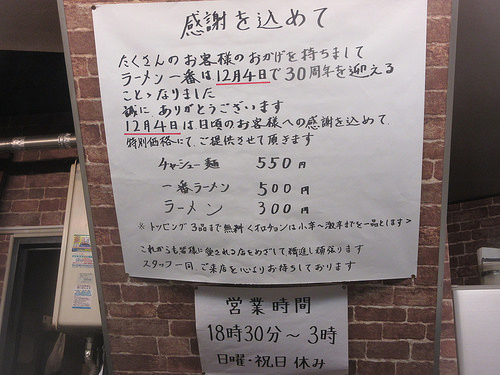 感謝を込めて
たくさんのお客様のおかげを持ちまして
ラーメン一番は12月4日で30周年を迎える
こととなりました
誠にありがとうございます
12月4日は日頃のお客様への感謝を込めて
特別価格にて、ご提供させて頂きます
チャシュー麺 550円
一番ラーメン 500円
ラーメン 300円
※トッピング3品まで無料くオロチョンは小辛〜激辛までを一品とします>
これからも皆様に愛される店をめざして精進し頑張ります
スタッフ一同、ご来店を心よりお待ちしております
営業時間
18時30分〜3時
日曜・祝日休み